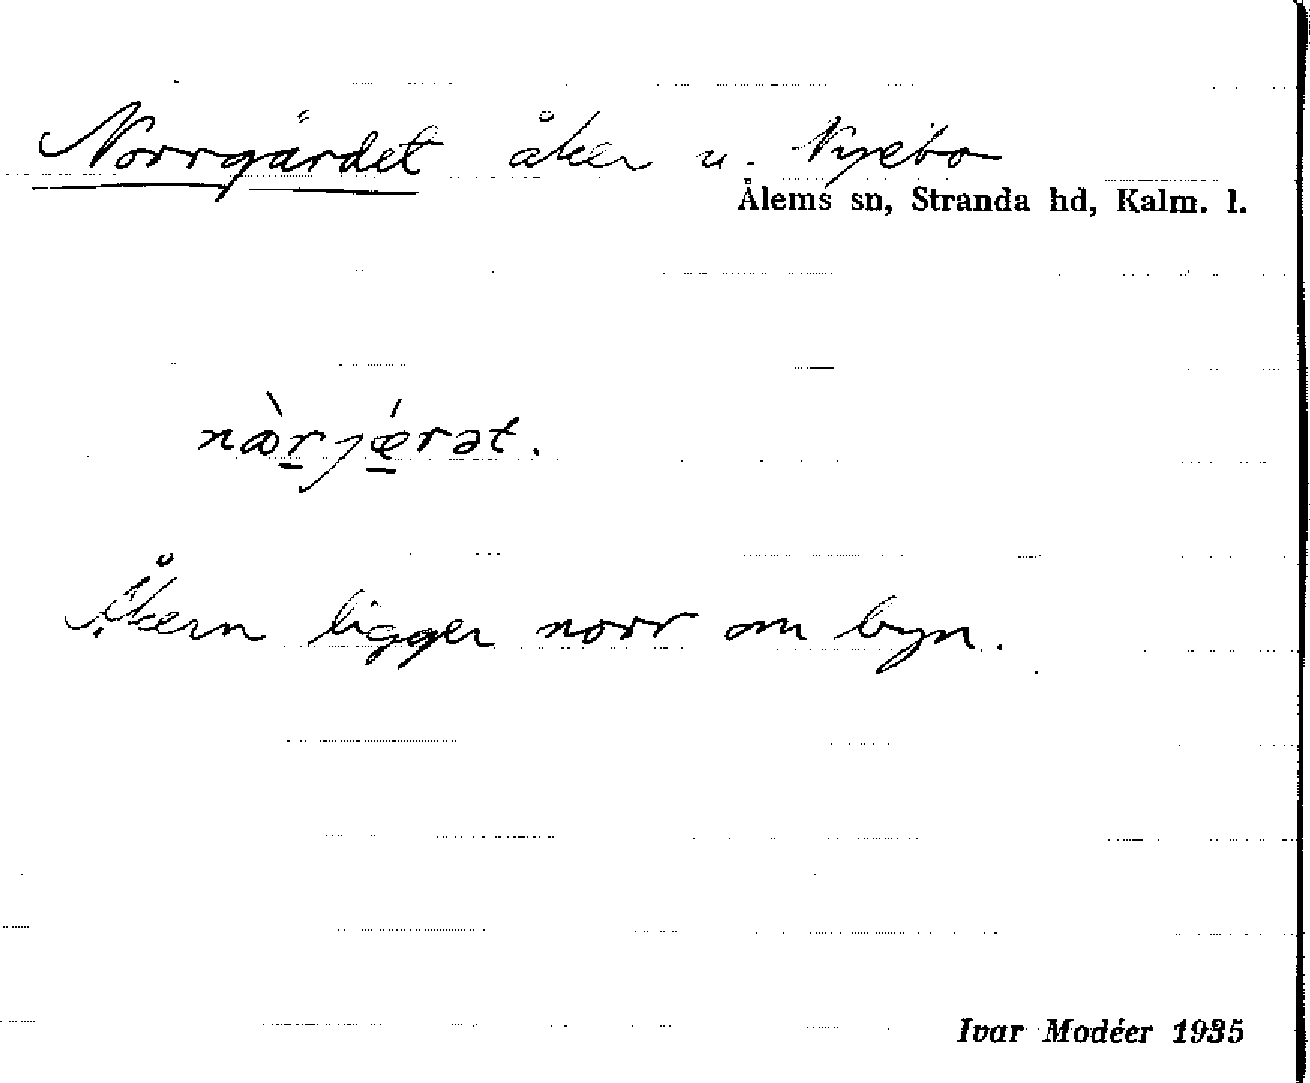 Norrgärdet åker u. Nyebo
Ålems sn, Stranda hd, Kalm. l.
nær̠jæ̠rət.
Åkern ligger norr om byn.
Ivar Modéer 1935